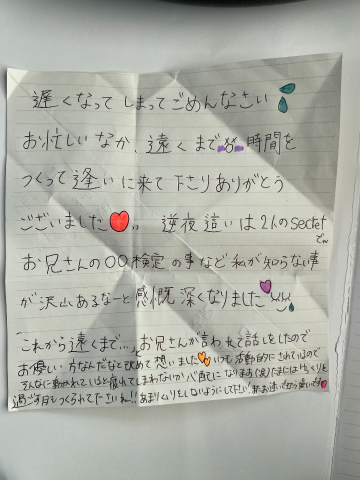 遅くなってしまってごめんなさい
お忙しいなか、遠くまで時間を
つくって逢いに来て下さりありがとう
ございました 逆夜這いは2人のsecretでw
お兄さんの〇〇検定の事など私が知らない事
が沢山あるなーと感慨深くなりました
これから遠くまで…とお兄さんが言われて話をしたので
お優しい方なんだなと改めて想いました いつも活動的にされているので
そんなに動かれていると疲れてしまわないか心配になります(笑)たまにはゆっくりと
過ごす日もつくられて下さいね!!あまりムリをしないようにして下さい!またお逢いできたら嬉しいです